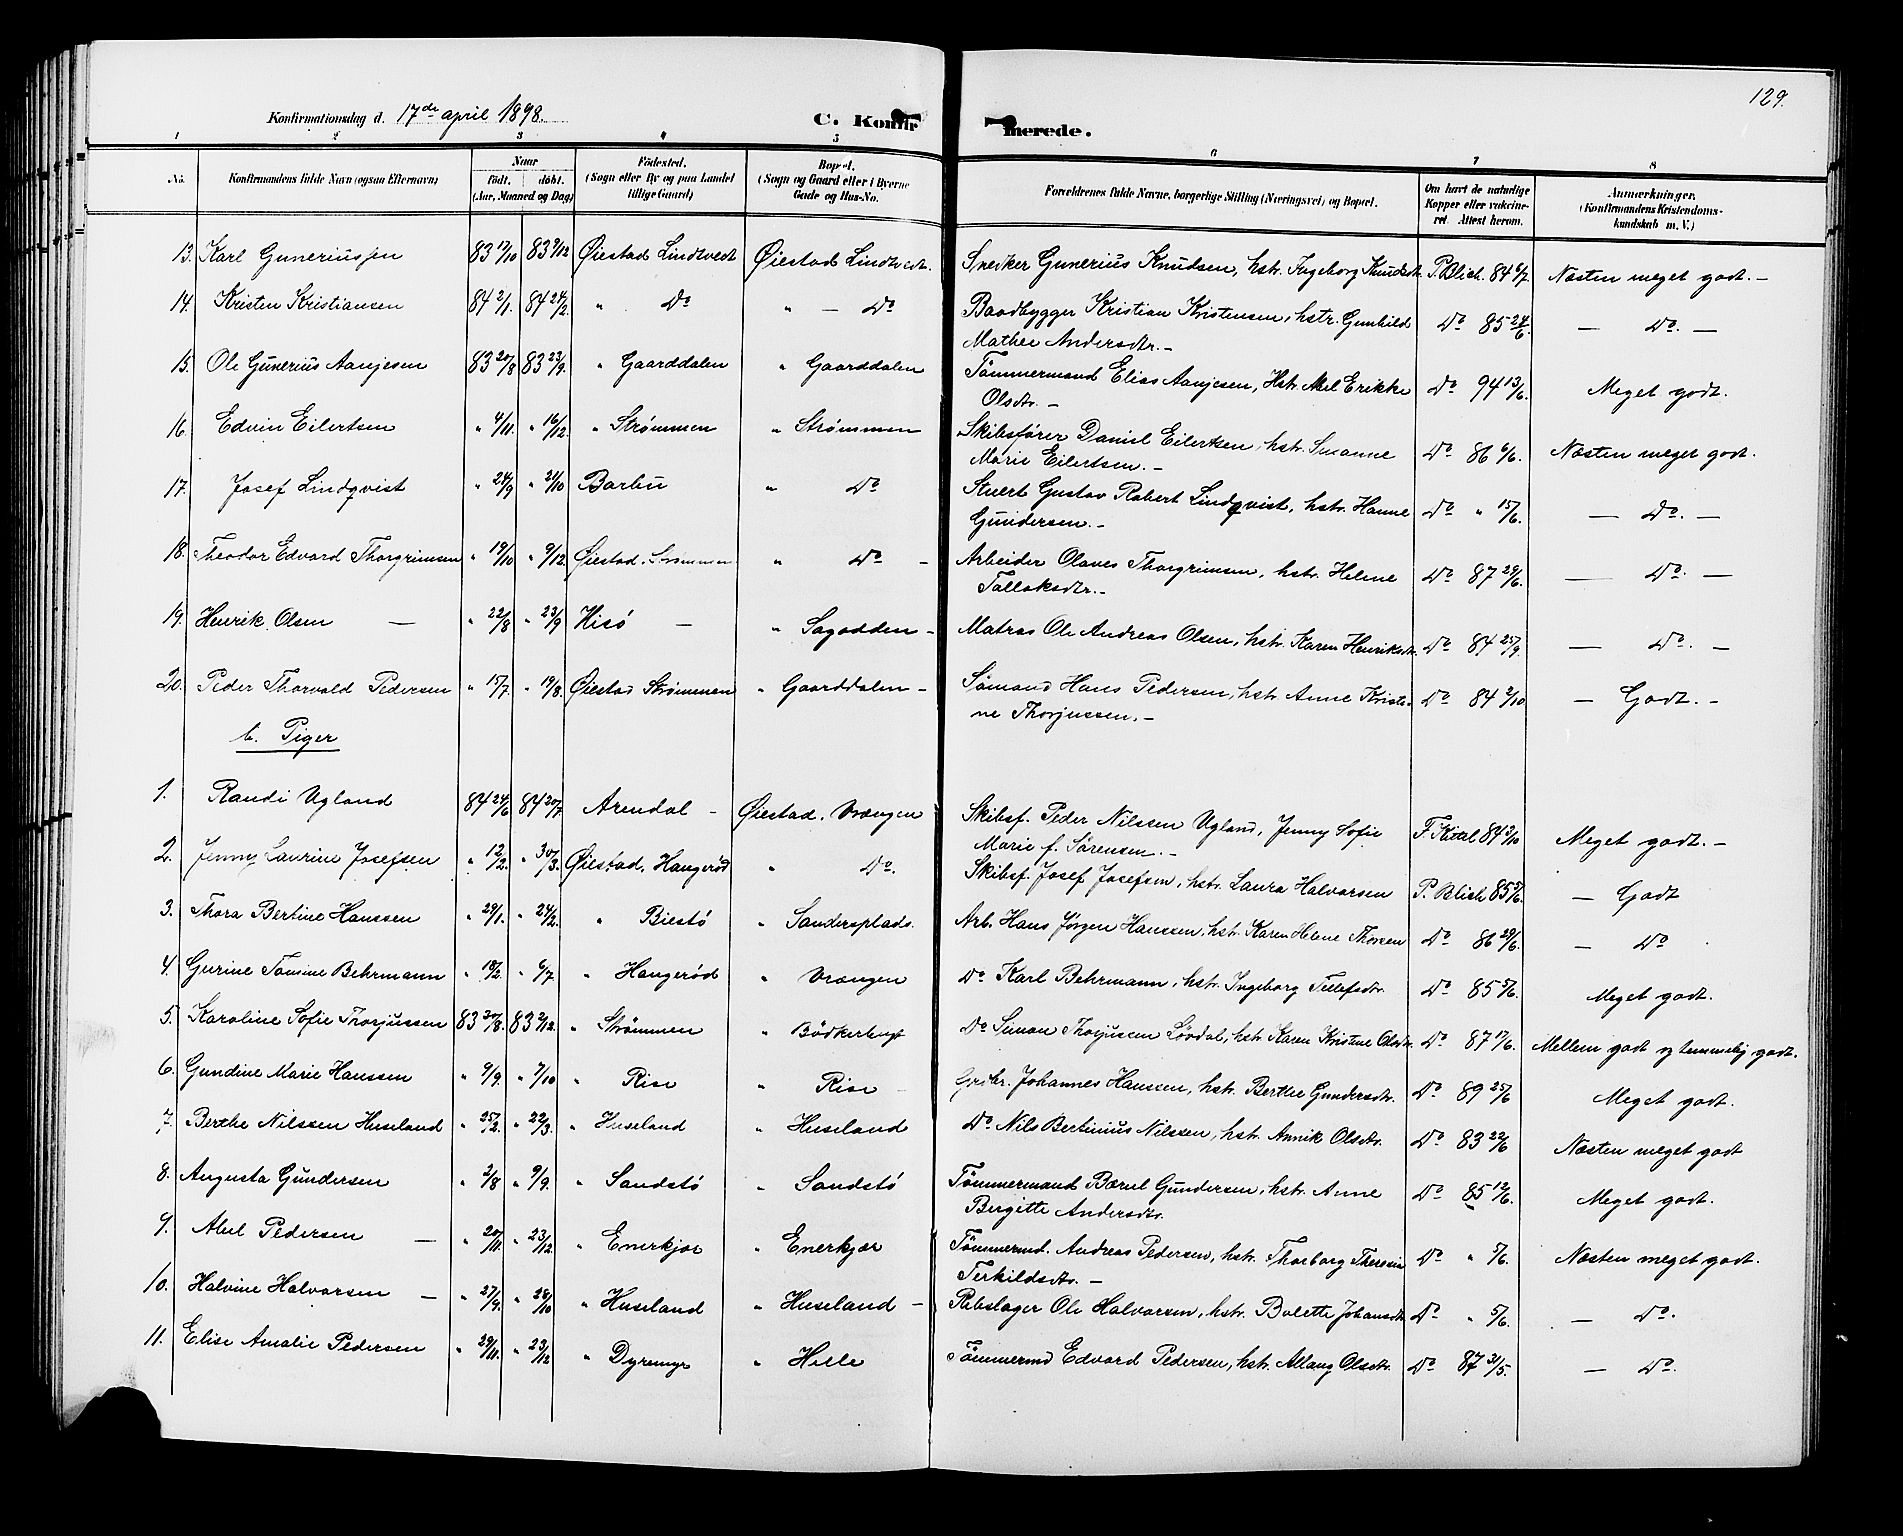 129.
Konfirmationsdag d. 17de april 1898.
C. Konfirmerede.
1 2 3 4 5 6 7 8
No.
Konfirmandens fulde Navn (ogsaa Efternavn)
Naar
födt. döbt.
(Aar, Maaned og Dag)
Födested.
(Sogn eller By og paa Landet
tillige Gaard)
Bopæl.
(Sogn og Gaard eller i Byerne
Gade og Hus-No.
Forældrenes fulde Navne, borgerlige Stilling (Næringsvei) og Bopæl.
Om havt de naturlige
Kopper eller vakcine-
ret. Attest herom.
Anmærkninger.
(Konfirmandens Kristendoms-
kundskab m. V.)
13. Karl Guneriussen 83 17/10 83 9/12 Øiestad Lindtvedt Øiestad Lindtvedt. Snedker Gunerius Knudsen, hstr. Ingeborg Knudsdt. P. Blich. 84 6/7. Næsten meget godt. —
14. Kristen Kristiansen 84 2/1. 84 24/2. " Do " — Do Baadbygger Kristian Kristensen, hstr. Gunhild Do 85 24/6. — Do. —
Mathee Andersdtr. —
15. Ole Gunerius Aanjesen 83 20/8 83 23/9. " Gaarddalen " Gaarddalen Tømmermand Elias Aanjesen, Hstr. Abel Erikke Do 94 13/6. Meget godt.
Olsdtr. —
16. Edvin Eilertsen " 4/11. " 16/12. " Strømmen " Strømmen Skibsfører Daniel Eilertsen, hstr. Susanne Do 86 6/6. Næsten meget godt.
Marie Eilertsen. —
17. Josef Lindqvist " 24/9 " 21/10 Barbu " Do Stuert Gustav Robert Lindqvist, hstr. Hanne Do " 15/6. — Do. —
Gundersen. —
18. Theodor Edvard Thorgrimsen " 19/10 " 9/12. Øiestad. Strømmen " Do — Arbeider Olaves Thorgrimsen, hstr. Helene Do 87 29/6. — Do. —
Tallaksdtr. —
19. Henrik Olsen — " 22/8 " 23/9 Hisø — " Sagodden — Matros Ole Andreas Olsen, hstr. Karen Henriksdt. Do 84 25/9. — Do. —
20. Peder Thorvald Pedersen " 15/7. " 19/8. Øiestad Strømmen " Gaarddalen — Sømand Hans Pedersen, hstr. Anne Kristi- Do 84 2/10 — Godt. —
ne Thorjussen. —
b. Piger
1. Randi Ugland 84 24/6 84 20/7 Arendal — Øiestad. Vrængen Skibsf. Peder Nilssen Ugland, Jenny Sofie F. Kittel 84 3/10 Meget godt. —
Marie f. Sørensen. —
2. Jenny Laurine Josefsen " 12/2. " 30/3. Øiestad, Haugerød " Do. Skibsf. Josef Josefsen, hstr. Laura Halvorsen P. Blich 85 5/6. — Godt
3. Thora Bertine Hanssen " 29/1. " 24/2. " Biestø " Sandersplads. Arb. Hans Jørgen Hanssen, hstr. Karen Helene Thorsen Do 86 29/6. — Do
4. Gurine Tomine Behrmann " 18/2. " 6/7. " Haugerød " Vrængen Do Karl Behrmann, hstr. Ingeborg Tellefsdtr. Do 85 5/6. Meget godt.
5. Karoline Sofie Thorjussen 83 30/8. 83 2/12. " Strømmen " Bødkerbugt Do Simon Thorjussen Løvdal, hstr. Karen Kristine Olsdtr. Do 87 17/6. Mellem godt og temmelig godt.
6. Gundine Marie Hanssen " 9/9. " 7/10 " Rise " Rise — Grdbr. Johannes Hanssen, hstr. Berthe Gundersdtr. Do 89 25/6 Meget godt.
7. Berthe Nilssen Huseland " 25/2. " 22/3. " Huseland " Huseland Do Nils Bertinius Nilssen, hstr. Annik Olsdtr. Do 83 22/6 Næsten meget godt
8. Augusta Gundersen " 2/8 " 9/9. " Sandstø " Sandstø Tømmermand Bærul Gundersen, hstr. Anne Do 85 12/6. Meget godt.
Birgitte Andersdtr.
9. Abel Pedersen — " 20/11. " 23/12 " Enerkjær " Enerkjær Tømmermd. Andreas Pedersen, hstr. Thorborg Theresia Do " 5/6. Næsten meget godt.
Terkildsdtr. —
10. Halvine Halvorsen — " 27/9. " 28/10 " Huseland " Huseland — Rebslager Ole Halvorsen, hstr. Bolette Johansdtr Do " 5/6. — Do.
11. Elise Amalie Pedersen " 29/11. " 23/12 " Dyremyr " Helle Tømmermd Edvard Pedersen, hstr. Allaug Olsdtr. Do 87 31/5. — Do.